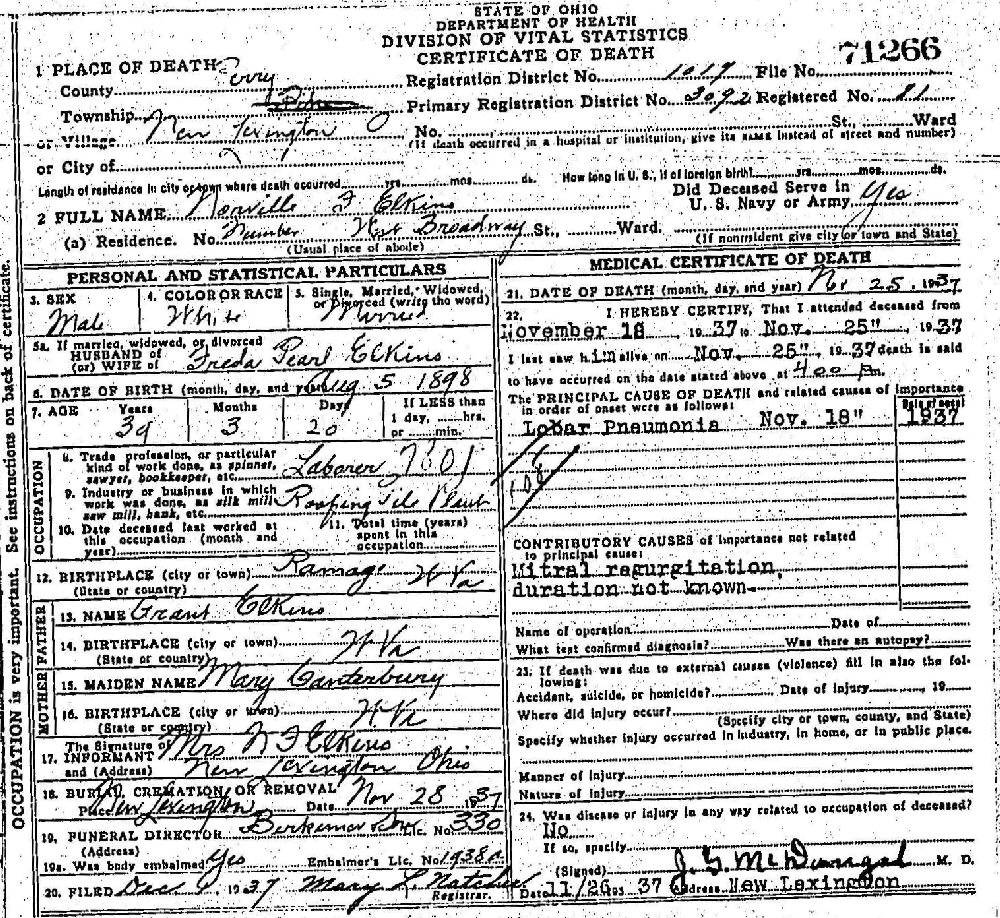 STATE OF OHIO
DEPARTMENT OF HEALTH
DIVISION OF VITAL STATISTICS
CERTIFICATE OF DEATH
71266
1 PLACE OF DEATH
County Perry Registration District No. 1019 File No.
Township Pike Primary Registration District No. 3092 Registered No. 81
or Village New Lexington O No. St., Ward
(If death occurred in a hospital or institution, give its NAME instead of street and number)
or City of
Length of residence in city or town where death occurred yrs. mos. ds. How long in U. S., if of foreign birth? yrs. mos. ds.
2 FULL NAME Norville F Elkins Did Deceased Serve in U. S. Navy or Army Yes
(a) Residence. No. Number West Broadway St., Ward.
(Usual place of abode) (If nonresident give city or town and State)
PERSONAL AND STATISTICAL PARTICULARS
3. SEX Male
4. COLOR OR RACE White
5. Single, Married, Widowed, or Divorced (write the word) Married
5a. If married, widowed, or divorced
HUSBAND of
(or) WIFE of Freda Pearl Elkins
6. DATE OF BIRTH (month, day, and year) Aug 5 1898
7. AGE Years Months Days If LESS than
1 day, hrs.
or min.
39 3 20
OCCUPATION
8. Trade profession, or particular
kind of work done, as spinner,
sawyer, bookkeeper, etc. Laborer 7601
9. Industry or business in which
work was done, as silk mill
saw mill, bank, etc. Roofing Tile Plant
10. Date deceased last worked at
this occupation (month and
year)
11. Total time (years)
spent in this
occupation
12. BIRTHPLACE (city or town) Ramage W Va
(State or country)
FATHER
13. NAME Grant Elkins
14. BIRTHPLACE (city or town) W Va
(State or country)
MOTHER
15. MAIDEN NAME Mary Canterbury
16. BIRTHPLACE (city or town) W Va
(State or country)
17. The Signature of
INFORMANT Mrs N F Elkins
and (Address) New Lexington Ohio
18. BURIAL, CREMATION OR REMOVAL
Place New Lexington Date Nov 28 1937
19. FUNERAL DIRECTOR Lic. No. 330
(Address)
19a. Was body embalmed Yes Embalmer's Lic. No. 1938A
20. FILED Dec 1937 Mary L.
Registrar.
MEDICAL CERTIFICATE OF DEATH
21. DATE OF DEATH (month, day, and year) Nov 25, 1937
22. I HEREBY CERTIFY, That I attended deceased from
November 18 1937 to Nov. 25", 1937
I last saw him alive on Nov. 25", 1937 death is said
to have occurred on the date stated above, at 400 Pm.
The PRINCIPAL CAUSE OF DEATH and related causes of importance
in order of onset were as follows: Date of onset
Lobar Pneumonia Nov. 18" 1937
108
CONTRIBUTORY CAUSES of importance not related
to principal cause:
Mitral regurgitation,
duration not known-
Name of operation Date of
What test confirmed diagnosis? Was there an autopsy?
23. If death was due to external causes (violence) fill in also the following:
Accident, suicide, or homicide? Date of injury 19
Where did injury occur?
(Specify city or town, county, and State)
Specify whether injury occurred in industry, in home, or in public place.
Manner of injury
Nature of injury
24. Was disease or injury in any way related to occupation of deceased?
No
If so, specify
(Signed) J. G. McDougal M. D.
Date 11/26 37 Address New Lexington
OCCUPATION is very important. See instructions on back of certificate.